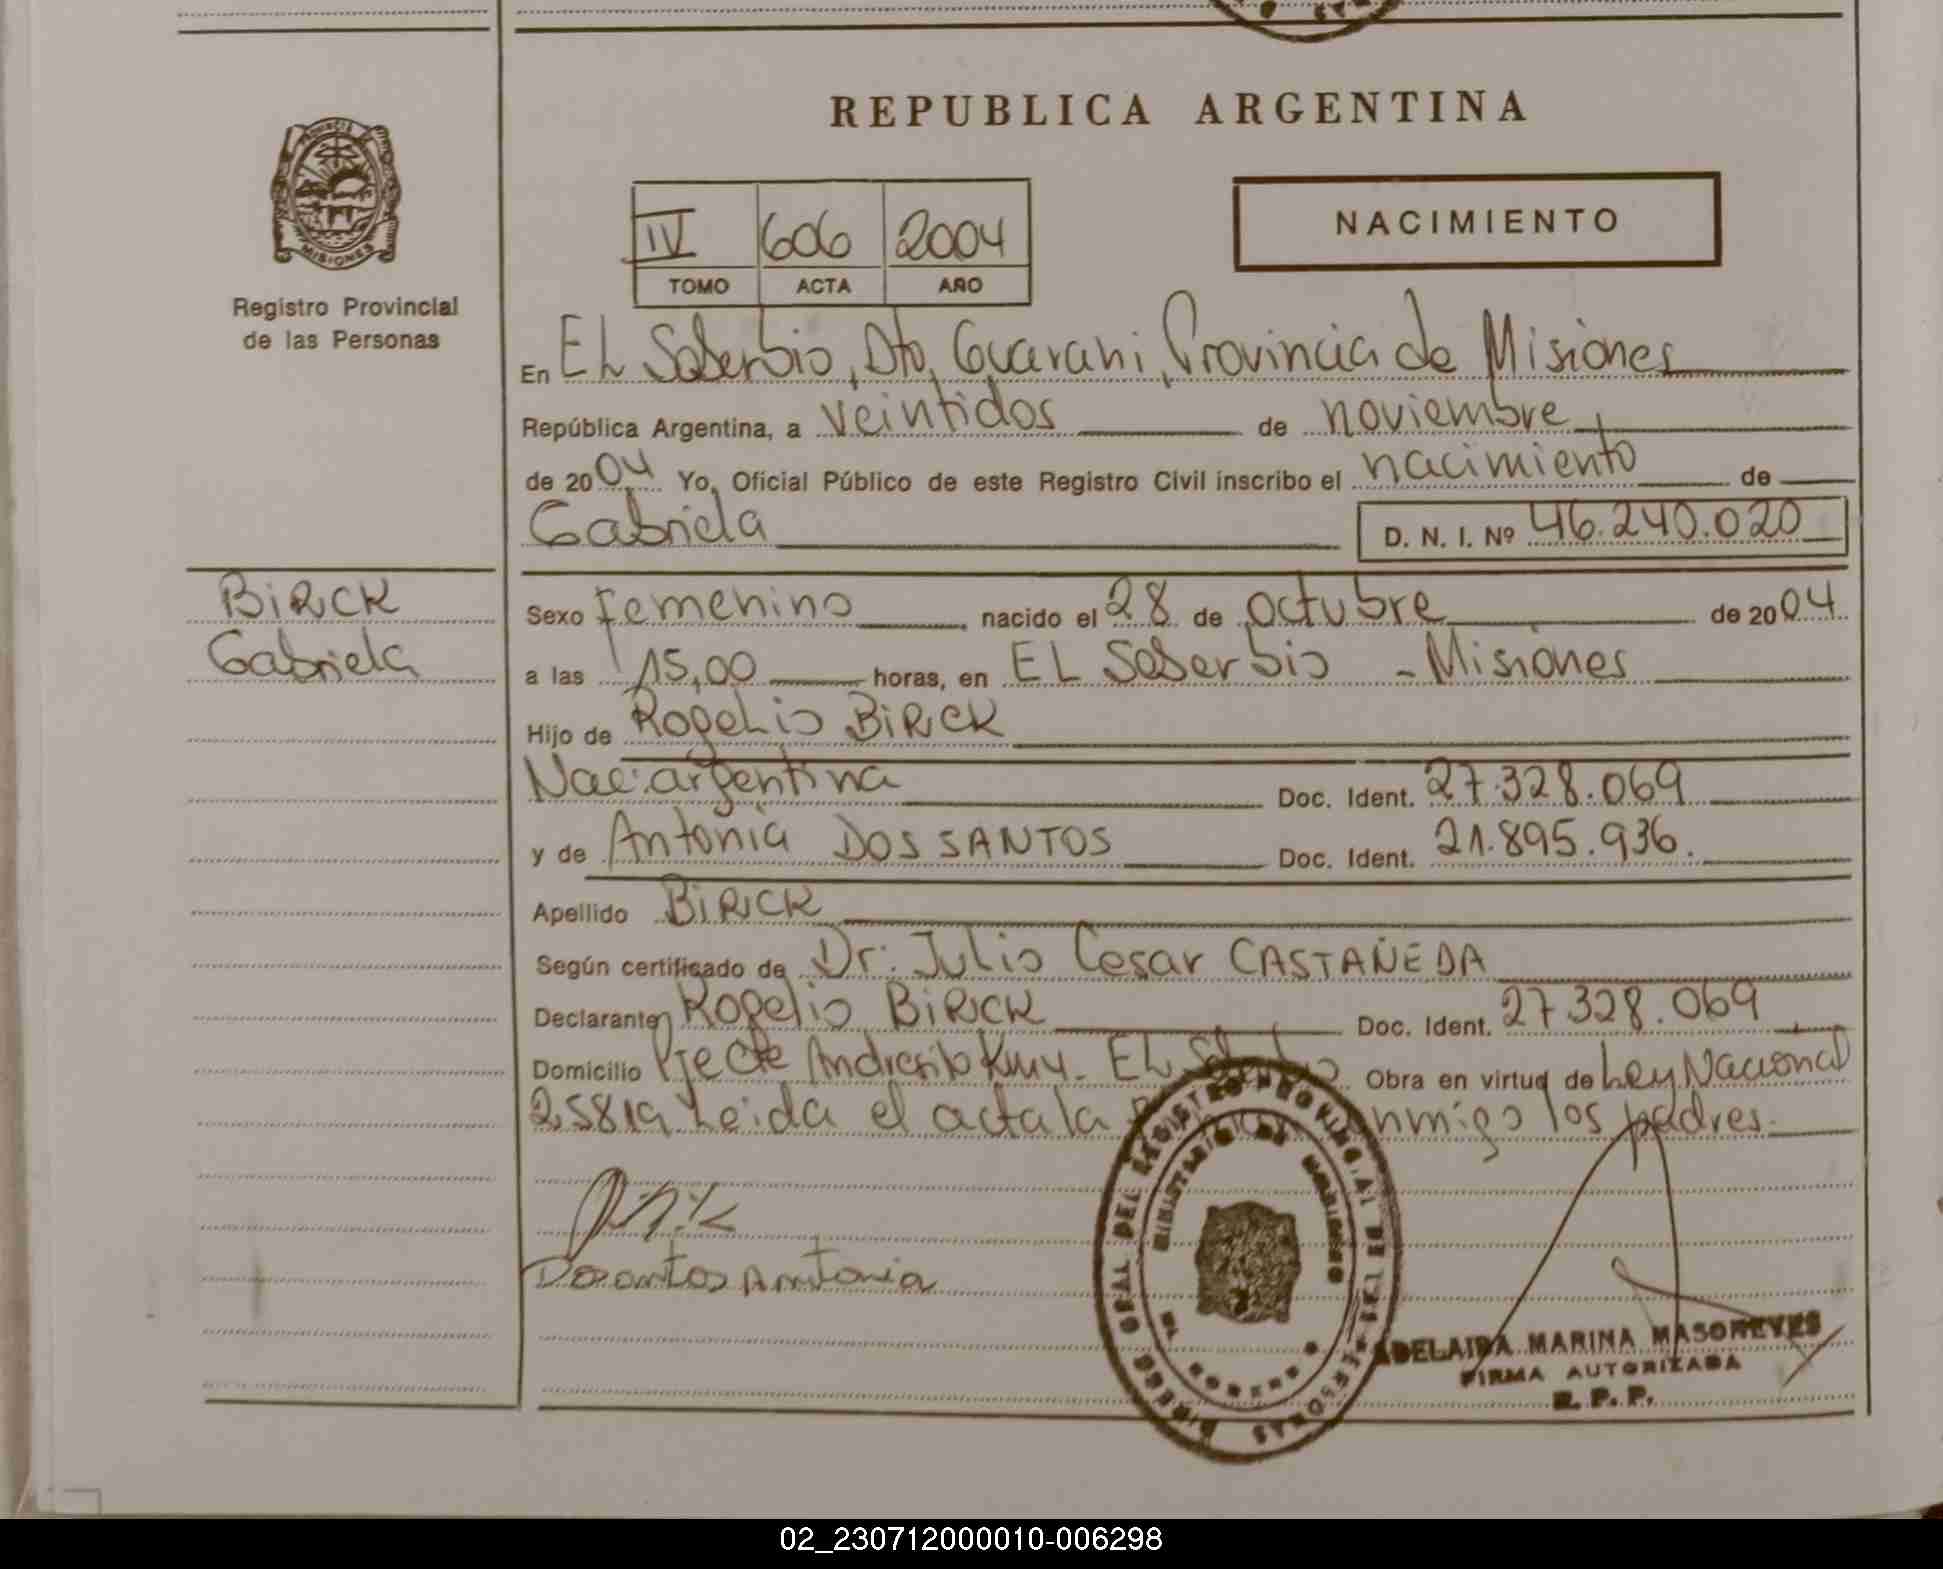 REPUBLICA ARGENTINA
MISIONES
Registro Provincial
de las Personas
IV 606 2004
TOMO ACTA AÑO
NACIMIENTO
En EL Soberbio, Dto, Guarani, Provincia de Misiones
República Argentina, a veintidos de noviembre
de 2004 Yo, Oficial Público de este Registro Civil inscribo el nacimiento de
Gabriela D. N. I. Nº 46.240.020
BIRCK
Gabriela
Sexo femenino nacido el 28 de octubre de 2004
a las 15,00 horas, en EL Soberbio - Misiones
Hijo de Rogelio BIRCK
Nac: argentina Doc. Ident. 27.328.069
y de Antonia DOS SANTOS Doc. Ident. 21.895.936.
Apellido BIRCK
Según certificado de Dr. Julio Cesar CASTAÑEDA
Declarante Rogelio BIRCK Doc. Ident. 27328.069
Domicilio Pje Cte Andresito Kmy - EL Obra en virtud de Ley Nacional
25819 Leida el acta la los padres.
Dosantos Antonia
GRAL DEL REGISTRO PROVINCIAL DE LAS PERSONAS
MINISTERIO DE
ADELAIDA MARINA MASONEVES
FIRMA AUTORIZADA
R. P. P.
02_230712000010-006298